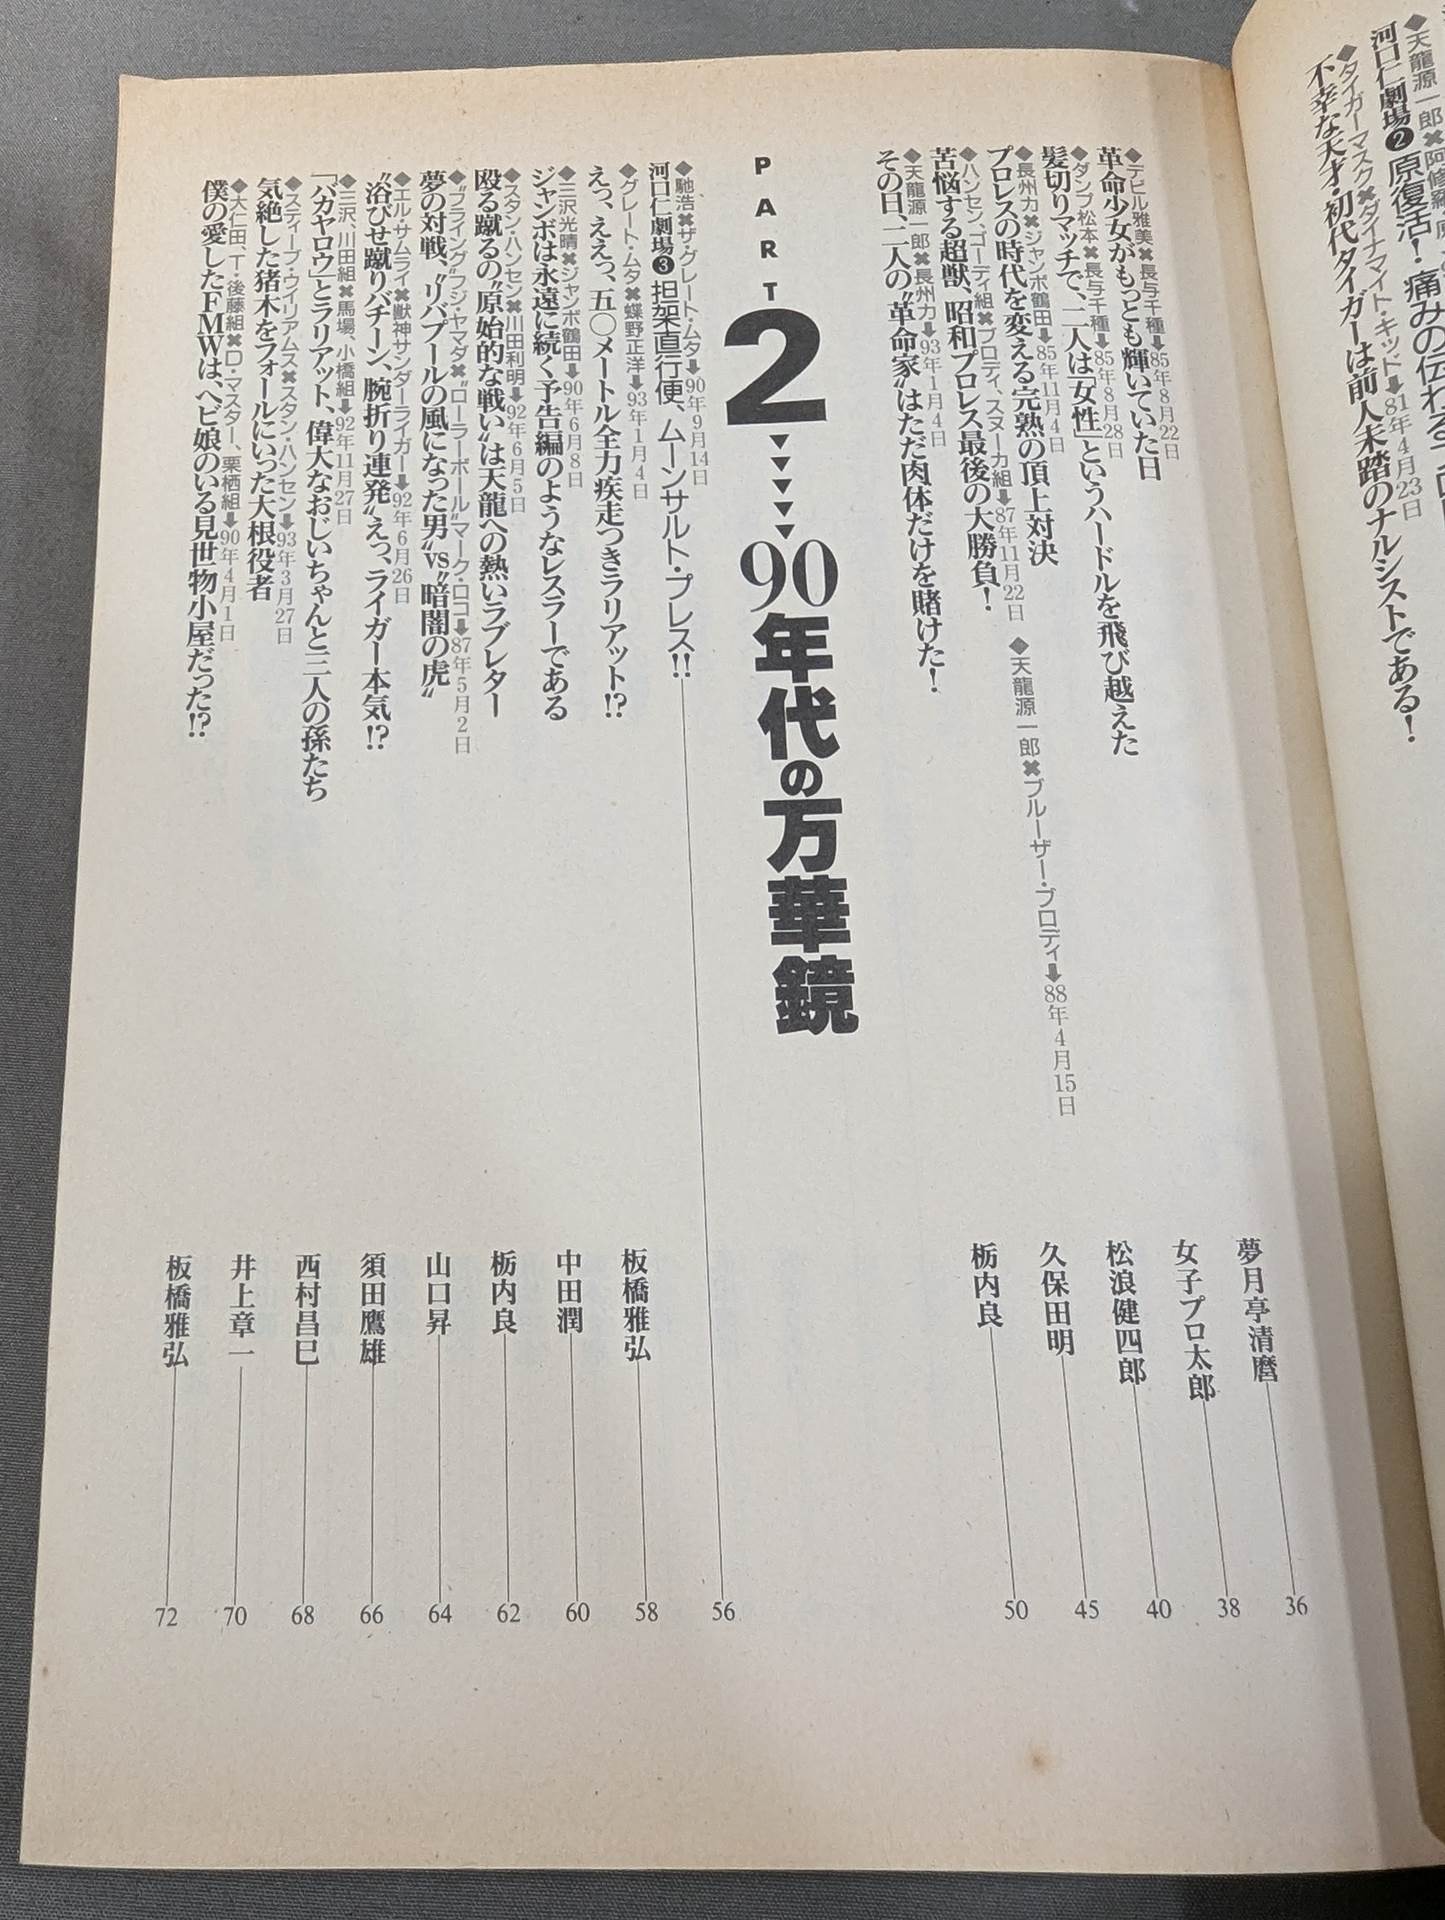 ◆天龍源一郎✖阿修羅
河口仁劇場❷原復活！痛みの伝わる
◆タイガーマスク✖ダイナマイト・キッド➡81年4月23日
不幸な天才・初代タイガーは前人未踏のナルシストである！
◆デビル雅美✖長与千種➡85年8月22日
革命少女がもっとも輝いていた日
夢月亭清麿
36
◆ダンプ松本✖長与千種➡85年8月28日
髪切りマッチで、二人は「女性」というハードルを飛び越えた
女子プロ太郎
38
◆長州力✖ジャンボ鶴田➡85年11月4日
プロレスの時代を変える完熟の頂上対決
松浪健四郎
40
◆ハンセン、ゴーディ組✖ブロディ、スヌーカ組➡87年11月22日
◆天龍源一郎✖ブルーザー・ブロディ➡88年4月15日
苦悩する超獣、昭和プロレス最後の大勝負！
久保田明
45
◆天龍源一郎✖長州力➡93年1月4日
その日、二人の“革命家”はただ肉体だけを賭けた！
栃内良
50
PART2 90年代の万華鏡
◆馳浩✖ザ・グレート・ムタ➡90年9月14日
河口仁劇場❸担架直行便、ムーンサルト・プレス!!
56
◆グレート・ムタ✖蝶野正洋➡93年1月4日
えっ、ええっ、五〇メートル全力疾走つきラリアット!?
板橋雅弘
58
◆三沢光晴✖ジャンボ鶴田➡90年6月8日
ジャンボは永遠に続く予告編のようなレスラーである
中田潤
60
◆スタン・ハンセン✖川田利明➡92年6月5日
殴る蹴るの“原始的な戦い”は天龍への熱いラブレター
栃内良
62
◆“フライング”フジ・ヤマダ✖“ローラーボール”マーク・ロコ➡87年5月2日
夢の対戦、“リバプールの風になった男”vs“暗闇の虎”
山口昇
64
◆エル・サムライ✖獣神サンダーライガー➡92年6月26日
“浴びせ蹴りバチーン、腕折り連発”えっ、ライガー本気!?
須田鷹雄
66
◆三沢、川田組✖馬場、小橋組➡92年11月27日
「バカヤロウ」とラリアット、偉大なおじいちゃんと三人の孫たち
西村昌巳
68
◆スティーブ・ウイリアムス✖スタン・ハンセン➡93年3月27日
気絶した猪木をフォールにいった大根役者
井上章一
70
◆大仁田、T・後藤組✖D・マスター、栗栖組➡90年4月1日
僕の愛したFMWは、ヘビ娘のいる見世物小屋だった!?
板橋雅弘
72